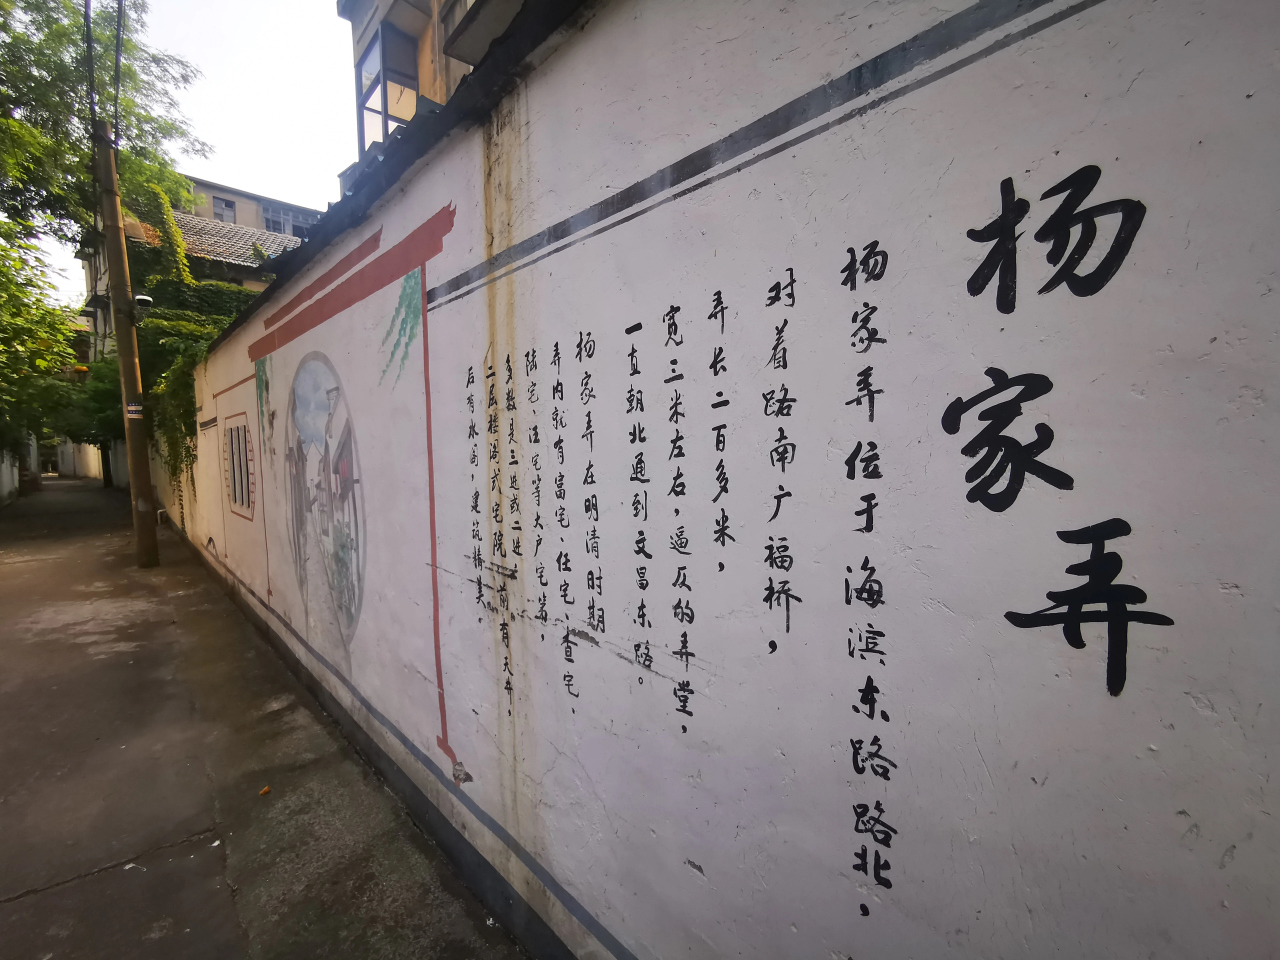 杨家弄
杨家弄位于海滨东路路北，
对着路南广福桥，
弄长二百多米，
宽三米左右，逼仄的弄堂，
一直朝北通到文昌东路。
杨家弄在明清时期
弄内就有富宅、任宅、查宅、
陆宅、汪宅等大户宅第，
多数是三进或二进。
二层楼阁式宅院，前有天井，
后有水阁，建筑精美。